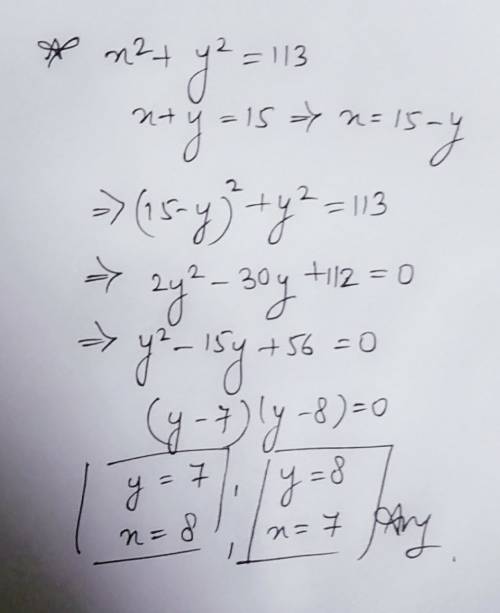 x² + y² = 113
x + y = 15 ⇒ x = 15 - y
⇒ (15 - y)² + y² = 113
⇒ 2y² - 30y + 112 = 0
⇒ y² - 15y + 56 = 0
(y - 7)(y - 8) = 0
y = 7 , y = 8
x = 8 , x = 7